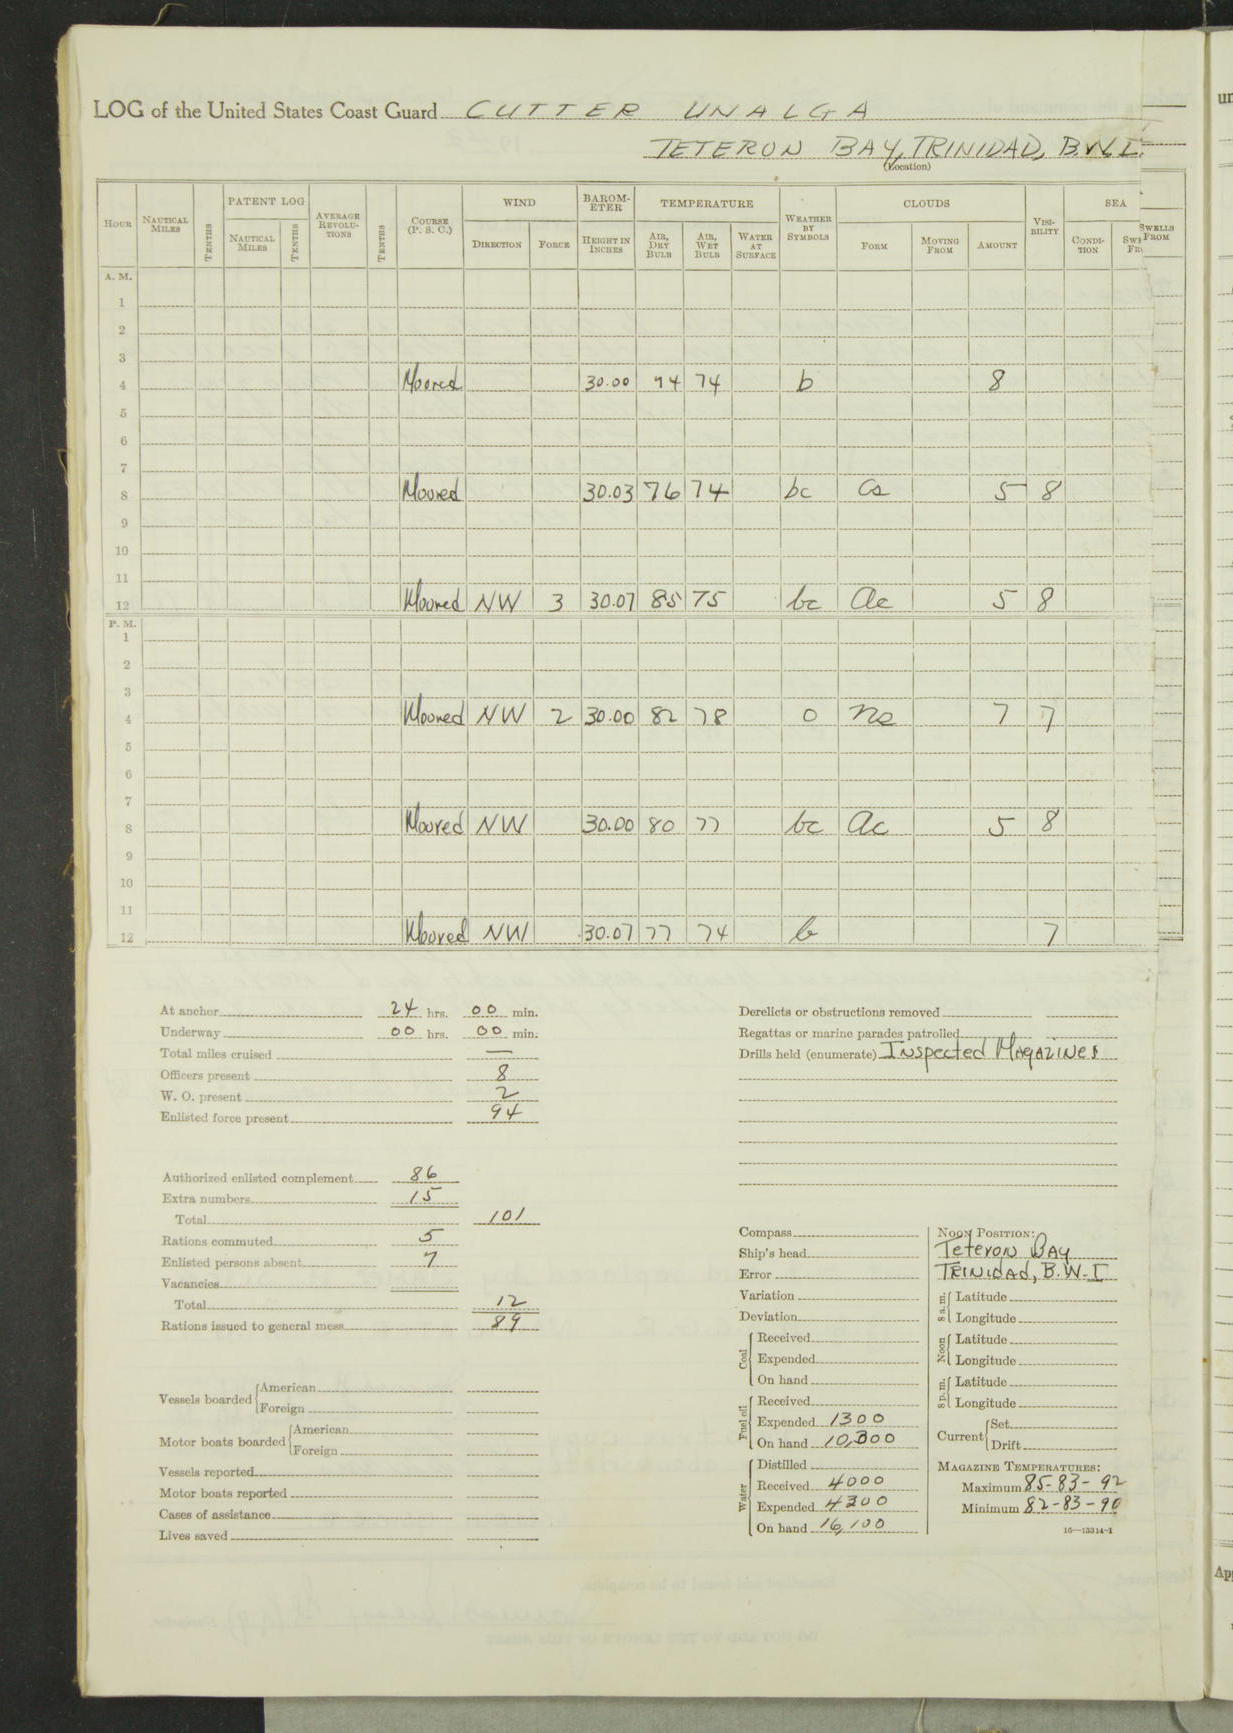 LOG of the United States Coast Guard CUTTER UNALGA
TETERON BAY, TRINIDAD, B.W.I.
(Location)
HOUR NAUTICAL MILES TENTHS PATENT LOG NAUTICAL MILES TENTHS AVERAGE REVOLUTIONS TENTHS COURSE (P. S. C.) WIND DIRECTION FORCE BAROMETER HEIGHT IN INCHES TEMPERATURE AIR, DRY BULB AIR, WET BULB WATER AT SURFACE WEATHER BY SYMBOLS CLOUDS FORM MOVING FROM AMOUNT VISIBILITY SEA CONDITION SWELLS FROM
A. M.
1
2
3
4 Moored 30.00 74 74 b 8
5
6
7
8 Moored 30.03 76 74 bc Cs 5 8
9
10
11
12 Moored NW 3 30.07 85 75 bc Ac 5 8
P. M.
1
2
3
4 Moored NW 2 30.00 82 78 o Ns 7 7
5
6
7
8 Moored NW 30.00 80 77 bc Ac 5 8
9
10
11
12 Moored NW 30.07 77 74 b 7
At anchor 24 hrs. 00 min.
Underway 00 hrs. 00 min.
Total miles cruised —
Officers present 8
W. O. present 2
Enlisted force present 94
Authorized enlisted complement 86
Extra numbers 15
Total 101
Rations commuted 5
Enlisted persons absent 7
Vacancies
Total 12
Rations issued to general mess 89
Vessels boarded American
Foreign
Motor boats boarded American
Foreign
Vessels reported
Motor boats reported
Cases of assistance
Lives saved
Derelicts or obstructions removed
Regattas or marine parades patrolled
Drills held (enumerate) Inspected Magazines
Compass
Ship's head
Error
Variation
Deviation
Coal Received
Expended
On hand
Fuel oil Received
Expended 1300
On hand 10,300
Water Distilled
Received 4000
Expended 4300
On hand 16,100
NOON POSITION:
Teteron Bay
Trinidad, B.W.I
8 a.m. Latitude
Longitude
Noon Latitude
Longitude
8 p.m. Latitude
Longitude
Current Set
Drift
MAGAZINE TEMPERATURES:
Maximum 85-83-92
Minimum 82-83-90
16—13314-1